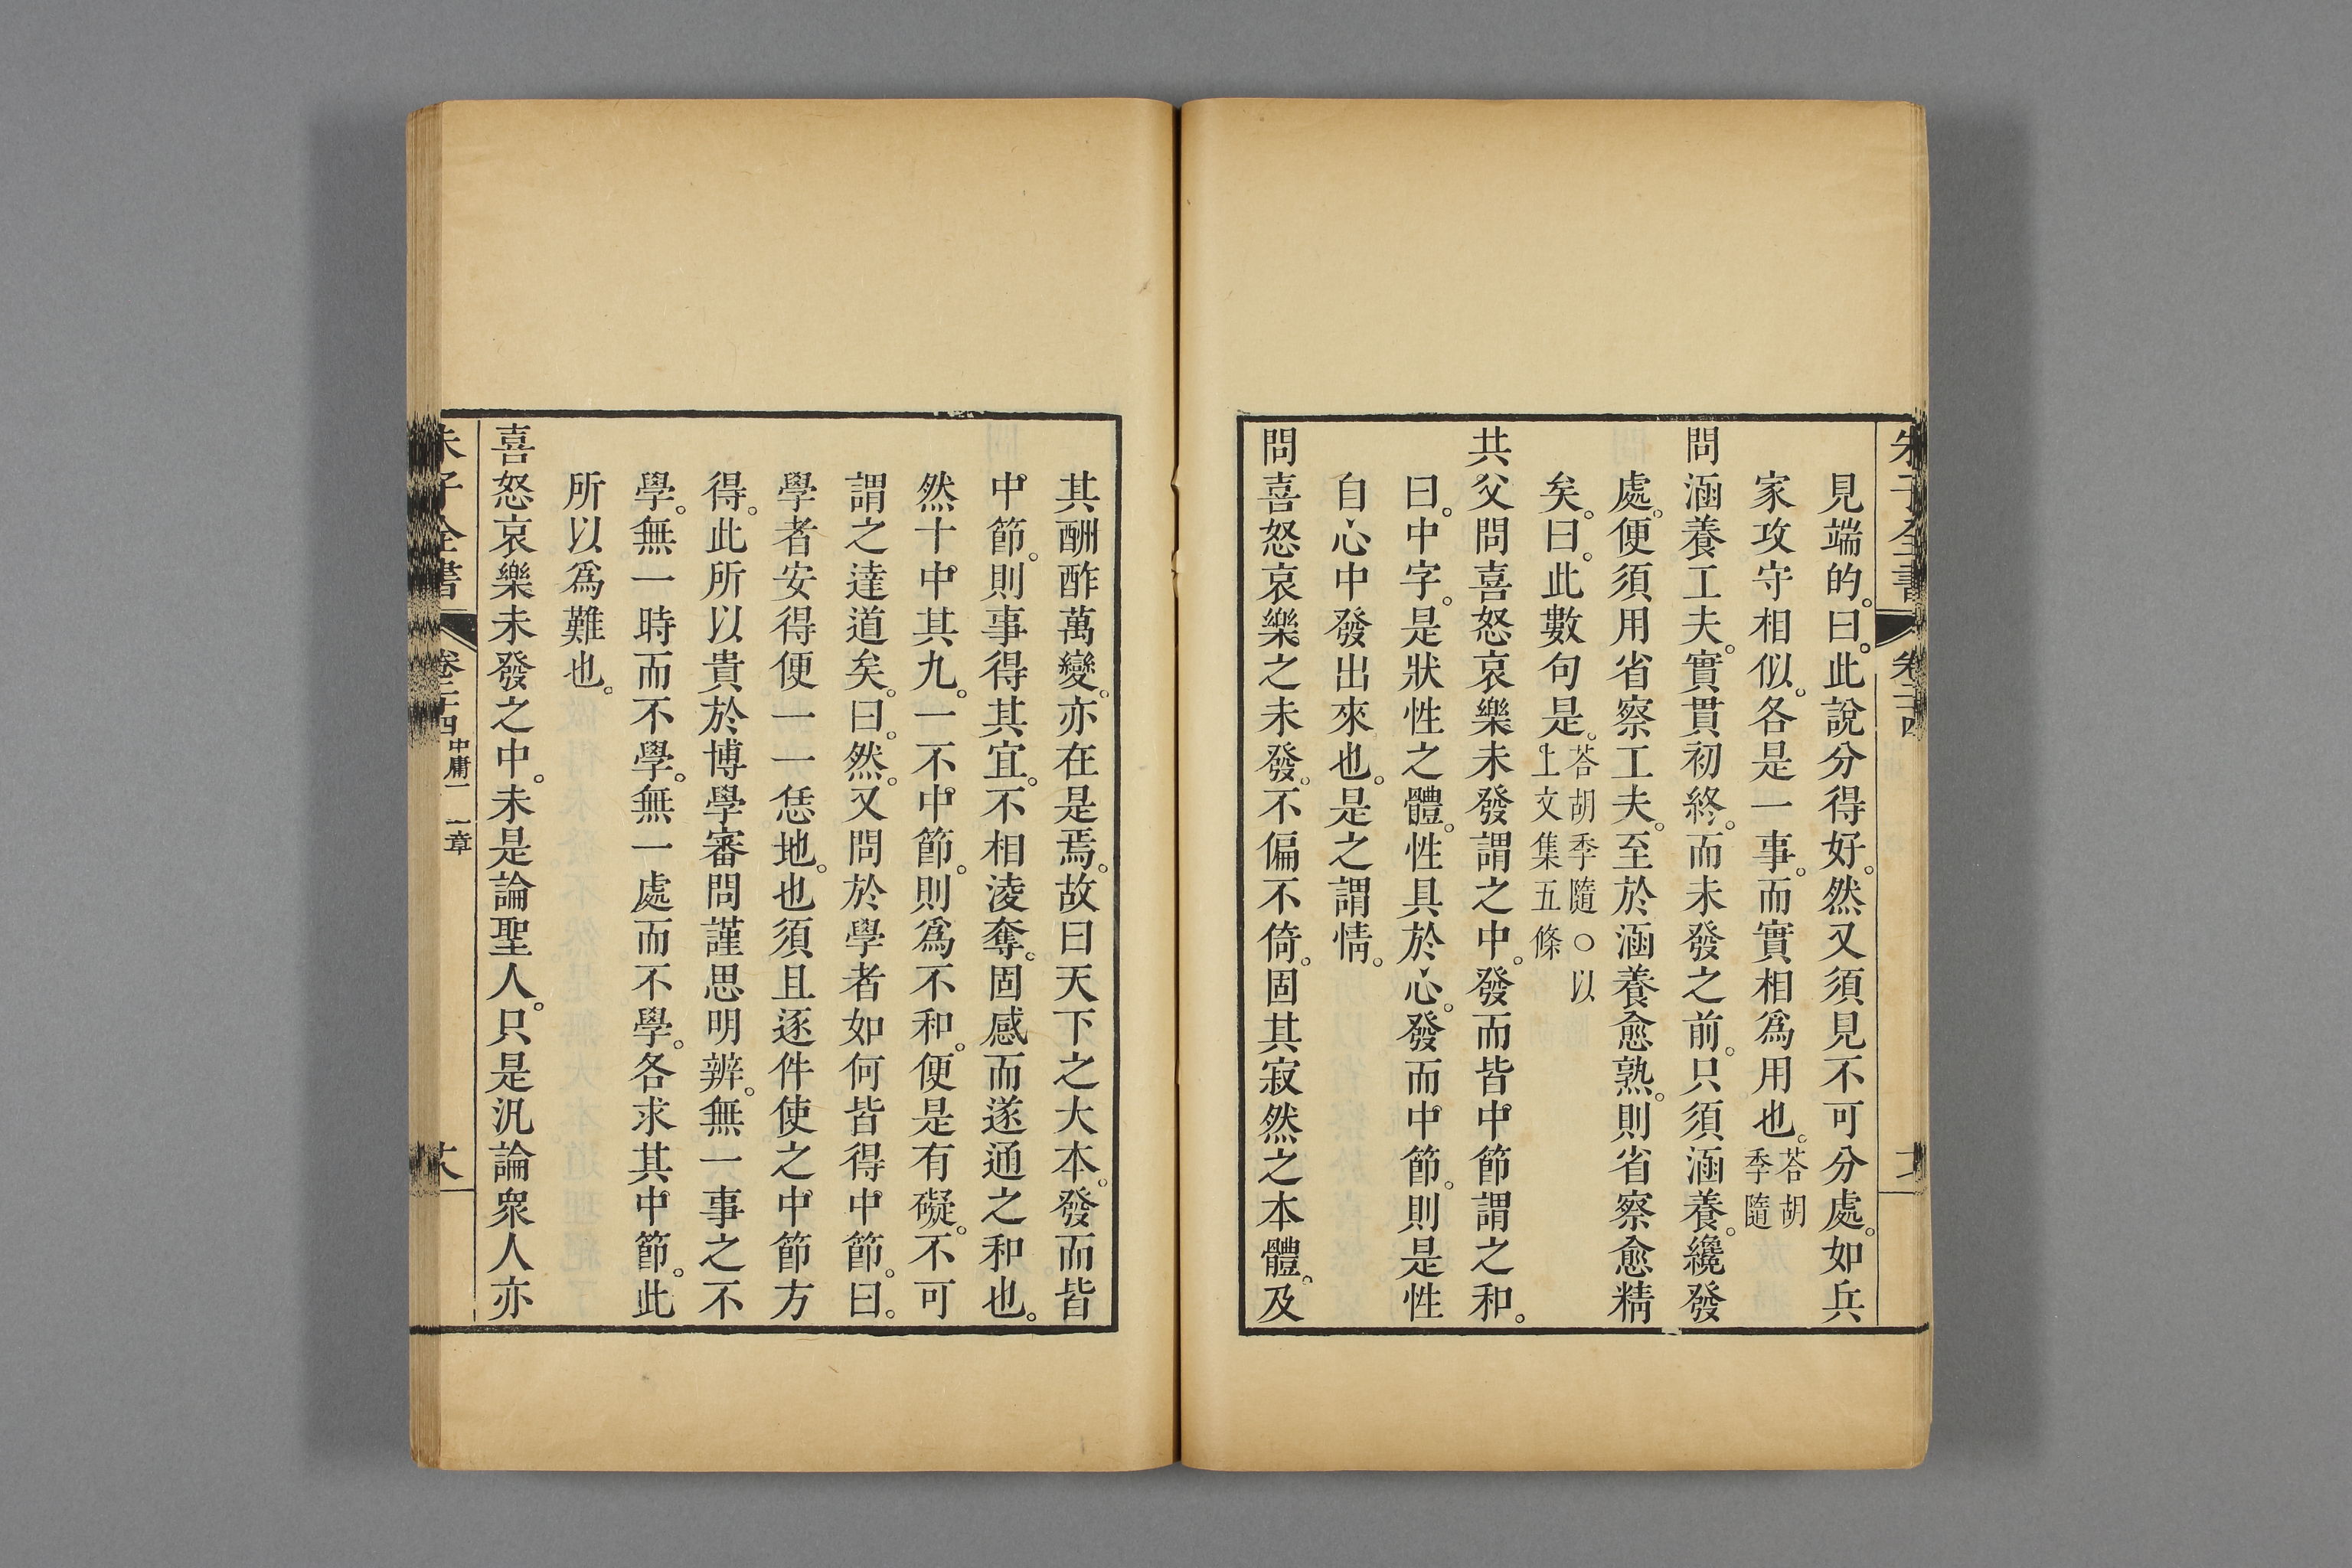 見端的。曰。此說分得好。然又須見不可分處。如兵
家攻守相似。各是一事。而實相爲用也。荅胡季隨
問涵養工夫。實貫初終。而未發之前。只須涵養。纔發
處。便須用省察工夫。至於涵養愈熟。則省察愈精
矣。曰。此數句是。荅胡季隨○以上文集五條
共父問喜怒哀樂未發謂之中。發而皆中節謂之和。
曰。中字。是狀性之體。性具於心。發而中節。則是性
自心中發出來也。是之謂情。
問喜怒哀樂之未發。不偏不倚。固其寂然之本體。及
其酬酢萬變。亦在是焉。故曰天下之大本。發而皆
中節。則事得其宜。不相淩奪。固感而遂通之和也。
然十中其九。一不中節。則爲不和。便是有礙。不可
謂之達道矣。曰。然。又問於學者如何皆得中節。曰。
學者安得便一一恁地。也須且逐件使之中節方
得。此所以貴於博學審問謹思明辨。無一事之不
學。無一時而不學。無一處而不學。各求其中節。此
所以爲難也。
喜怒哀樂未發之中。未是論聖人。只是汎論衆人亦
朱子全書 卷二十四 中庸一 一章